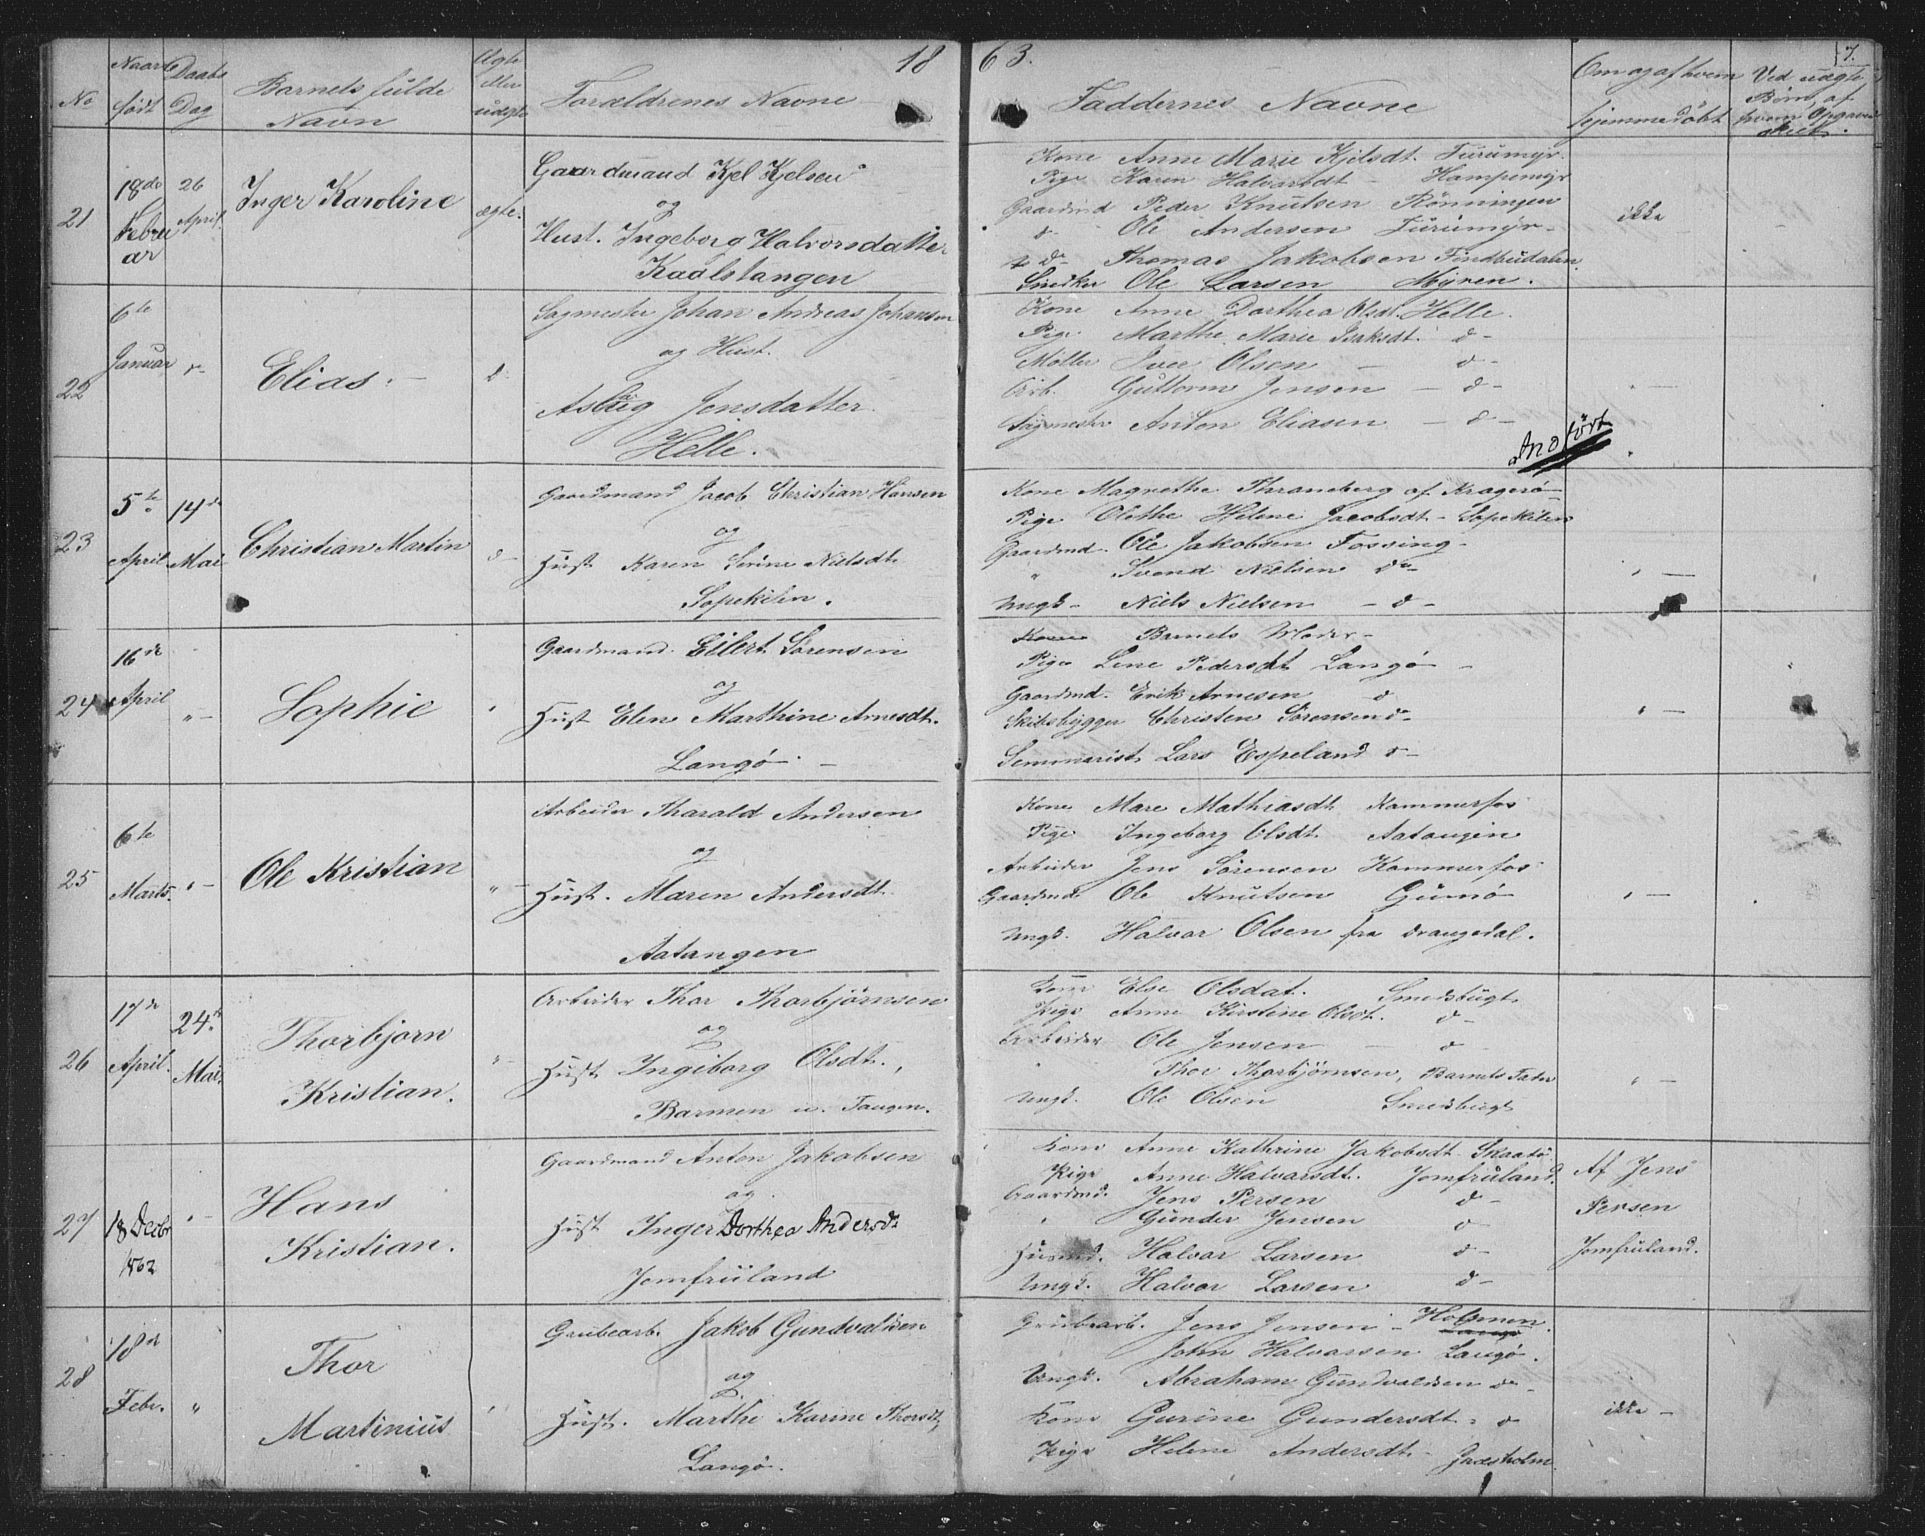 1863.
7.
No
Naar født
Daabs Dag
Barnets fulde Navn
Ægte eller uægte
Forældrenes Navne
Faddernes Navne
Om og af hvem hjemmedöbt
Ved uægte Börn, af hvem Opgaven skeet.
21
18de Februar
26 April
Inger Karoline
ægte.
Gaardmand Kjel Kjelsen
og
Hust. Ingeborg Halvorsdatter
Kaalstangen
Kone Anne Marie Kjelsdt. Furumyr.
Pige Karen Halvarsdt - Hampemyr
Gaardmd Peder Knutsen Rönningen
d- Ole Andersen Furumyr-
d- Thomas Jakobsen Findbudalen
Snedker Ole Larsen Myren.
ikke
22
6te Januar
d-
Elias.-
d-
Sagmester Johan Andreas Johansen
og Hust.
Aslaug Jensdatter
Helle.
Kone Anne Dorthea Olsdt. Helle.
Pige Marthe Marie Isaksdt. d-
Möller Iver Olsen - d-
Arb. Guttorm Jensen - d-
Sagmester Anton Eliasen - d-
" -
Andført
23
5te April
14de Mai
Christian Martin
d-
Gaardmand Jacob Christian Hansen
og
Hust Karen Serine Nielsdt.
Sopekilen.
Kone Magrethe Thraneberg af Kragerö-
Pige Olethe Helene Jacobsdt - Sopekilen
Gaardmd. Ole Jakobsen Fossing-
" Svend Nielsen do-
Ungk- Niels Nielsen - d-
" -
24
16de April
"-
Sophie
"
Gaardmand. Eilert Sörensen
og
Hust Elen Marthine Arnesdt.
Langö. -
Kone Barnets Moder-
Pige Lene Pedersdt Langö -
Gaardmd. Erik Arnesen d
Skibsbygger Christen Sörensen do-
Seminarist Lars Espeland d-
" -
25
6te Marts.
"-
Ole Kristian
"-
Arbeider Tharald Andersen
og
Hust. Maren Andersdt.
Aatangen
Kone Mare Mathiasdt. Kammerfos
Pige Ingeborg Olsdt. Aatangen
Arbeider Jens Sörensen Kammerfos
Gaardmd. Ole Knutsen Gumö
Ungk. Halvar Olsen fra Drangedal.
" -
26
17de April.
24de Mai.
Thorbjörn
Kristian.
"-
Arbeider Thor Thorbjörnsen
og
Hust Ingeborg Olsdt.,
Barmen u. Tangen.
Kone Else Olsdat. Smedsbugt
Pige Anne Kirstine Olsdt. d-
Arbeider Ole Jensen - d-
" Thor Thorbjörnsen, Barnets Fader
Ungk. Ole Olsen Smedsbugt
" -
27
18 Decbr 1862
"-
Hans
Kristian.
Gaardmand Anton Jakobsen
og
Hust Inger Dorthea Andersdt
Jomfruland
Kone Anne Kathrine Jakobsdt. Skaatö
Pige Anne Halvarsdt. Jomfruland.
Gaardmd. Jens Persen d-
" Gunder Jensen d-
Husmd. Halvar Larsen d-
Ungk. Halvor Larsen d-
Af Jens
Persen
Jomfruland.
28
18de Febr.
"
Thor
Martinius
"
Grubearb. Jakob Gundvaldsen
og
Hust. Marthe Karine Thorsdt,
Langö.
Grubearb. Jens Jensen - Holmen.
John Halvarsen Langö.
Ungk. Abraham Gundvaldsen do-
Kone Gurine Gundersdt. - d
Pige Helene Andersdt - Jaesholm
ikke -